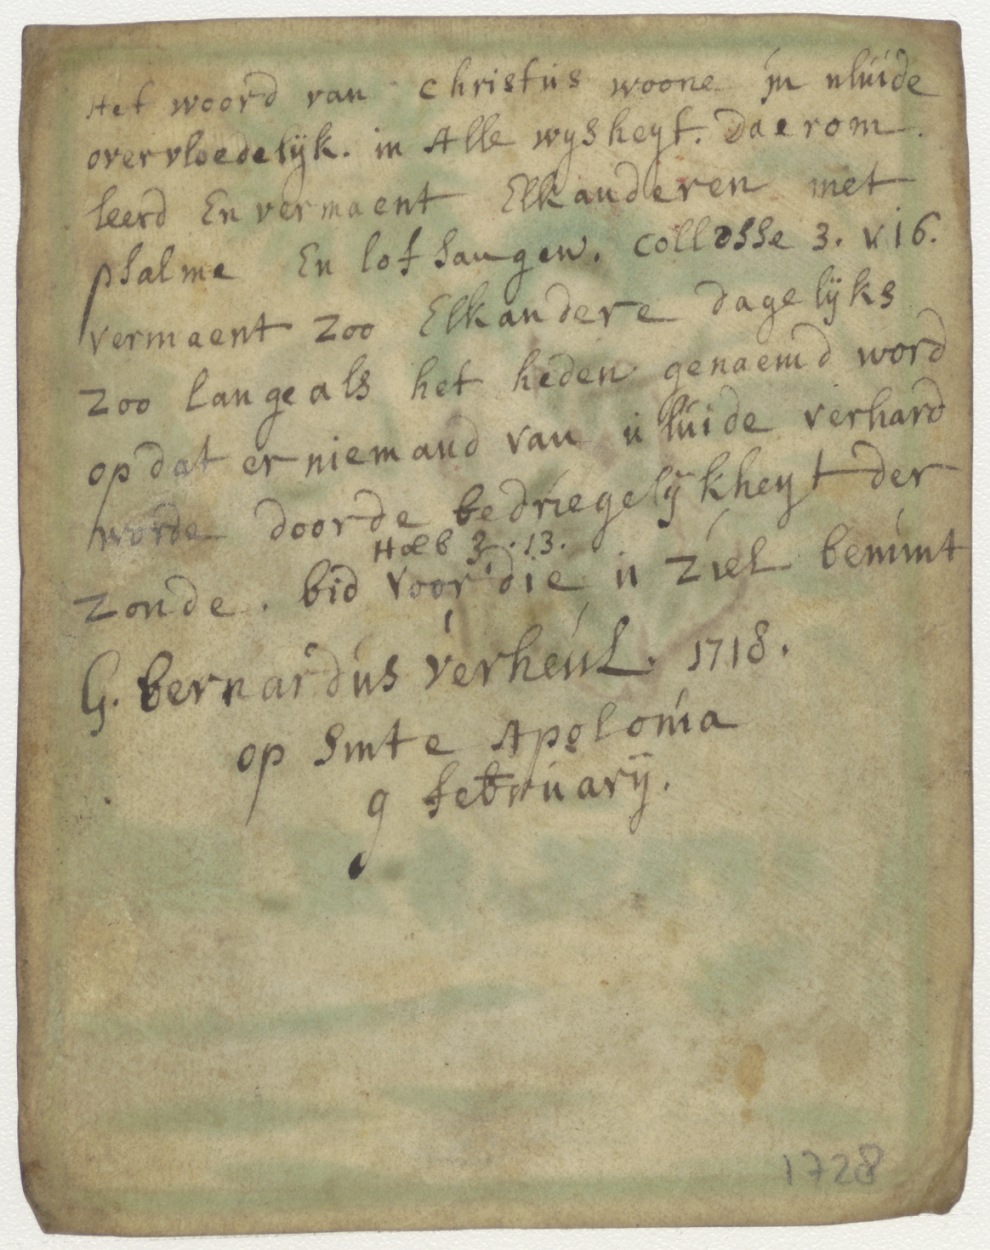 Het woord van Christus woone in uluide
overvloedelijk. in Alle wysheyt. Daerom.
leerd En vermaent Elkanderen met
psalme En lof sangen. Collosse 3. v 16.
vermaent zoo Elkandere dagelijks
zoo lange als het heden genaemd word
op dat er niemand van u luide verhard
worde door de bedriegelijkheyt der
Heb 3.13.
zonde. bid voor die u ziel bemint
G. bernardus verheul. 1718.
op sinte Apolonia
9 februarij.
1728